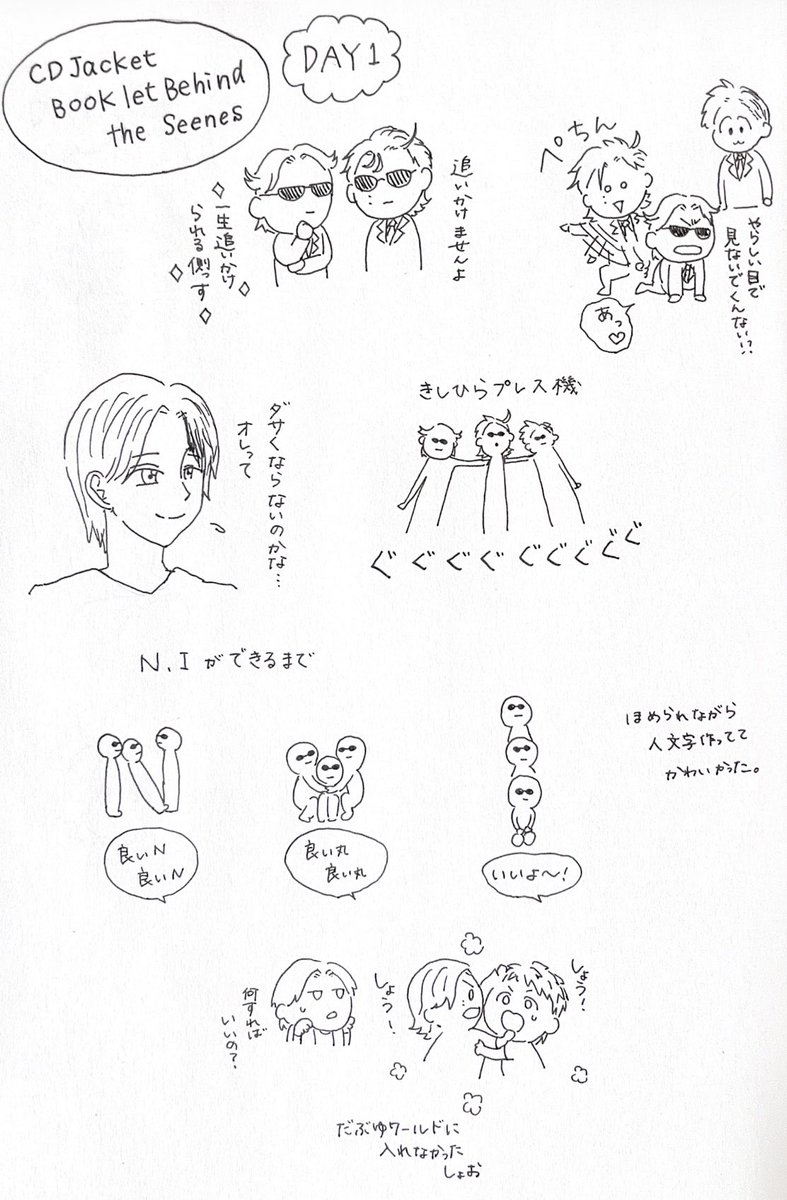 CD Jacket
Booklet Behind
the Seenes
DAY1
追いかけませんよ
一生追いかけ
られる側っす
ぺちん
やらしい目で
見ないでくんない!?
あっ♡
ダサくならないのかな…
オレって
きしひらプレス機
ぐぐぐぐぐぐぐぐぐ
N.Iができるまで
良いN
良いN
良い丸
良い丸
いいよ〜!
ほめられながら
人文字作ってて
かわいかった。
何すれば
いいの?
しょう!
しょう!
だぶゆワールドに
入れなかった
しょお